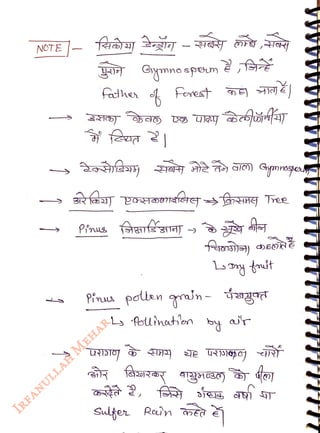 NOTE |- सिकोया डेन्ड्रॉन - सबसे लम्बे, सबसे
पुराने Gymnosperm है, जिन्हें
Father of Forest कहा जाता है|
→ इसका केवल एक पादप केलीफॉर्निया
में स्थित है|
→ टेक्सोडियम सबसे मोटे तने वाला Gymnosperm
→ अरेकिया एक्सकलादविल → क्रिसमस Tree
→ Pinus जिरार्डिआना → के सूखे बीज
चिलगोजा कहलाते हैं
↳ dry fruit
→ Pinus pollen grain - पंखयुक्त
↳ Pollination by air
→ परागण के समय यह परागकण चारों
ओर बिखरकर वायुमण्डल को पीला
करदेते है, जिसे गंधक वर्षा या
Sulfer Rain कहते है|
IRFANULLAH MEHAR